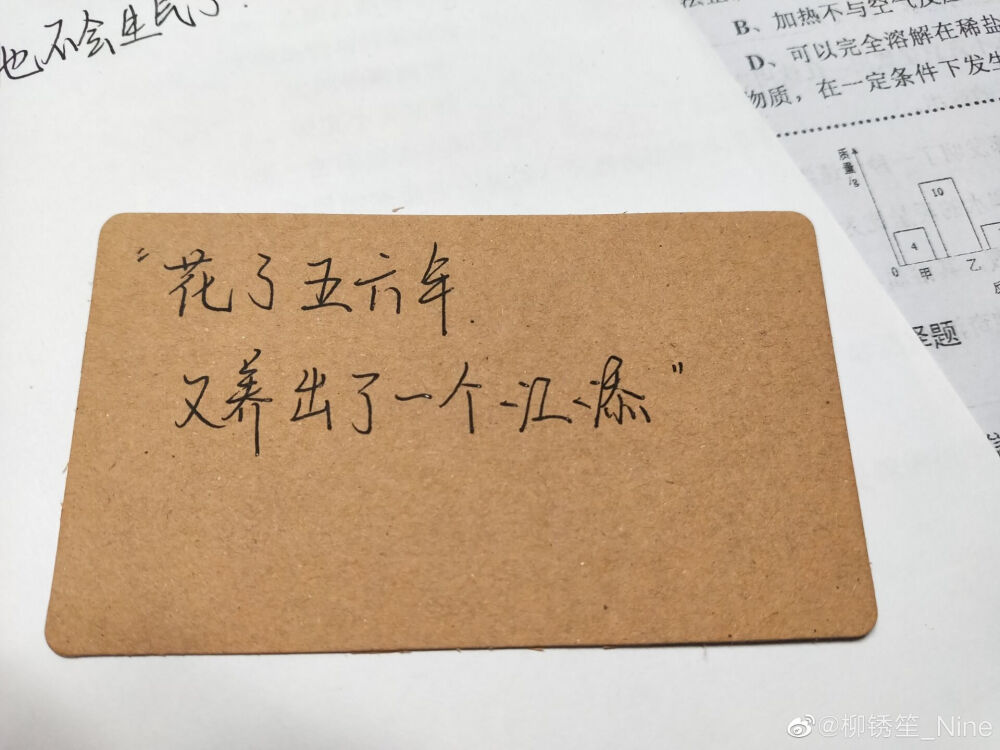 也不会生气了.
B、加热不与空气反应
D、可以完全溶解在稀盐
物质，在一定条件下发生
质量/g
4
10
0 甲 乙
择题
“花了五六年
又养出了一个江添”
@柳锈笙_Nine